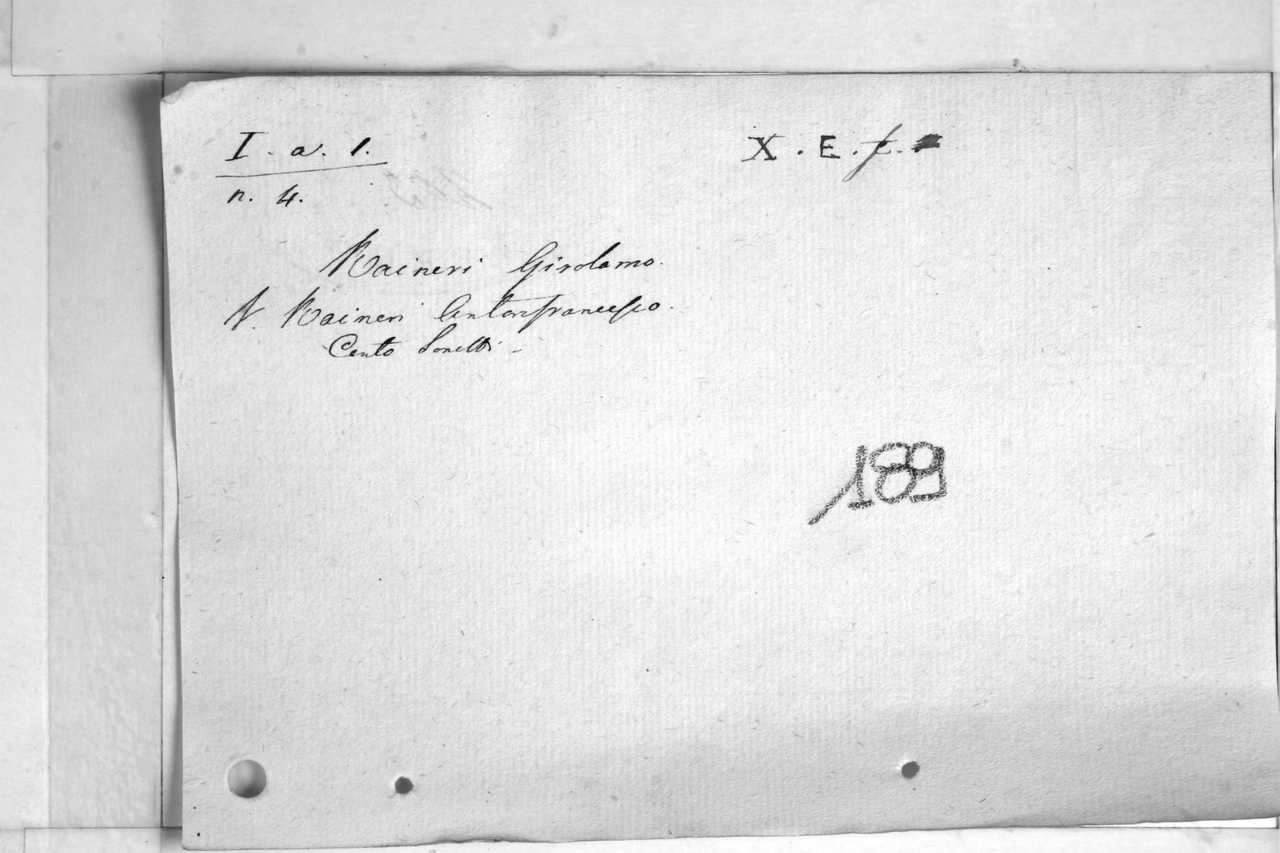 I. a. 1.
X. E. f.
n. 4.
Raineri Girolamo.
V. Raineri Antonfrancesco.
Cento Sonetti -
189